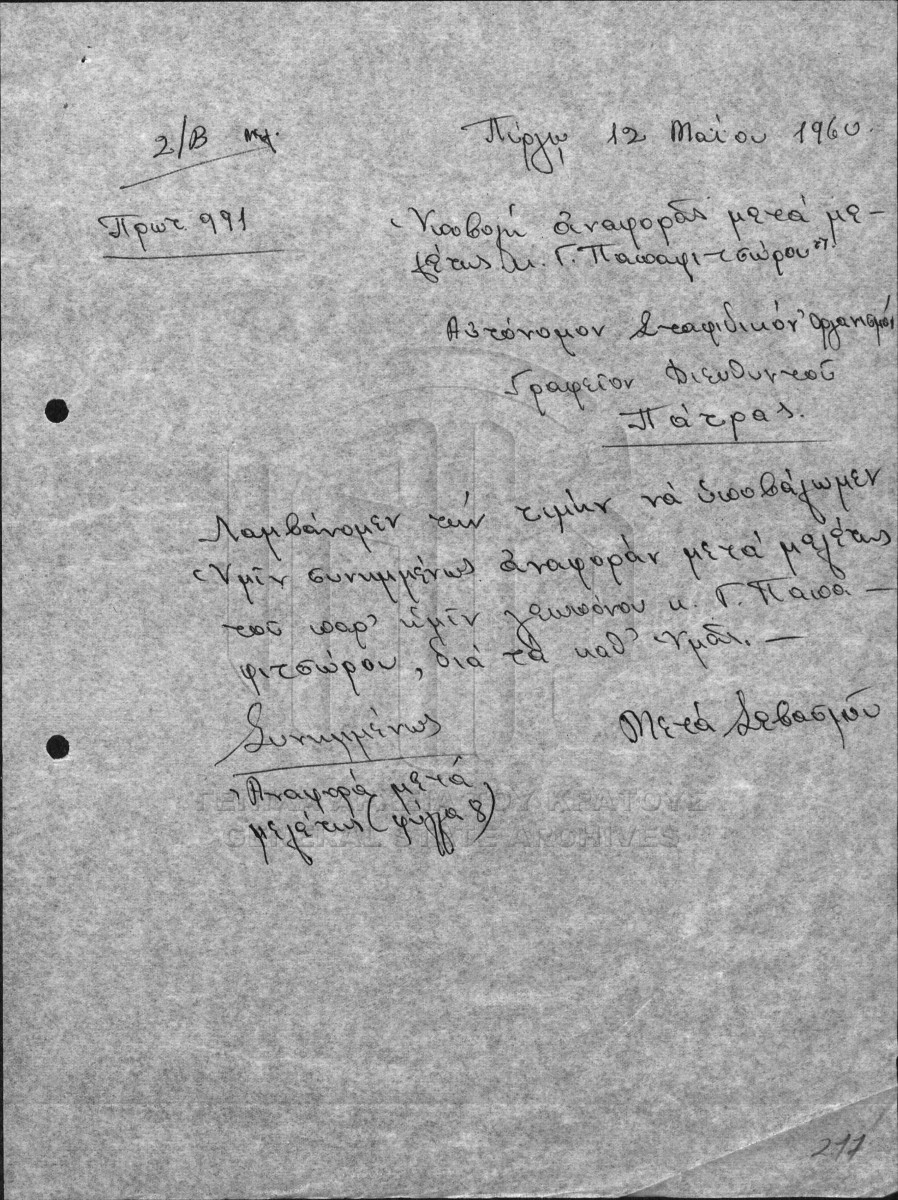 2/Β
Πύργῳ 12 Μαΐου 1960.
Πρωτ. 991
"Υποβολή ἀναφορᾶς μετά με-
λέτης κ. Γ. Παπαφιτσώρου"
Αὐτόνομον Σταφιδικόν Ὀργανισμόν
Γραφεῖον Διευθυντοῦ
Πάτρας.
Λαμβάνομεν τήν τιμήν νά ὑποβάλωμεν
Ὑμῖν συνημμένως ἀναφοράν μετά μελέτης
τοῦ παρ' ἡμῖν γεωπόνου κ. Γ. Παπα-
φιτσώρου, διά τά καθ' Ὑμᾶς. —
Μετά Σεβασμοῦ
Συνημμένως
Ἀναφορά μετά
μελέτης (φύλλα 8)
ΓΕΝΙΚΑ ΑΡΧΕΙΑ ΤΟΥ ΚΡΑΤΟΥΣ
GENERAL STATE ARCHIVES
217